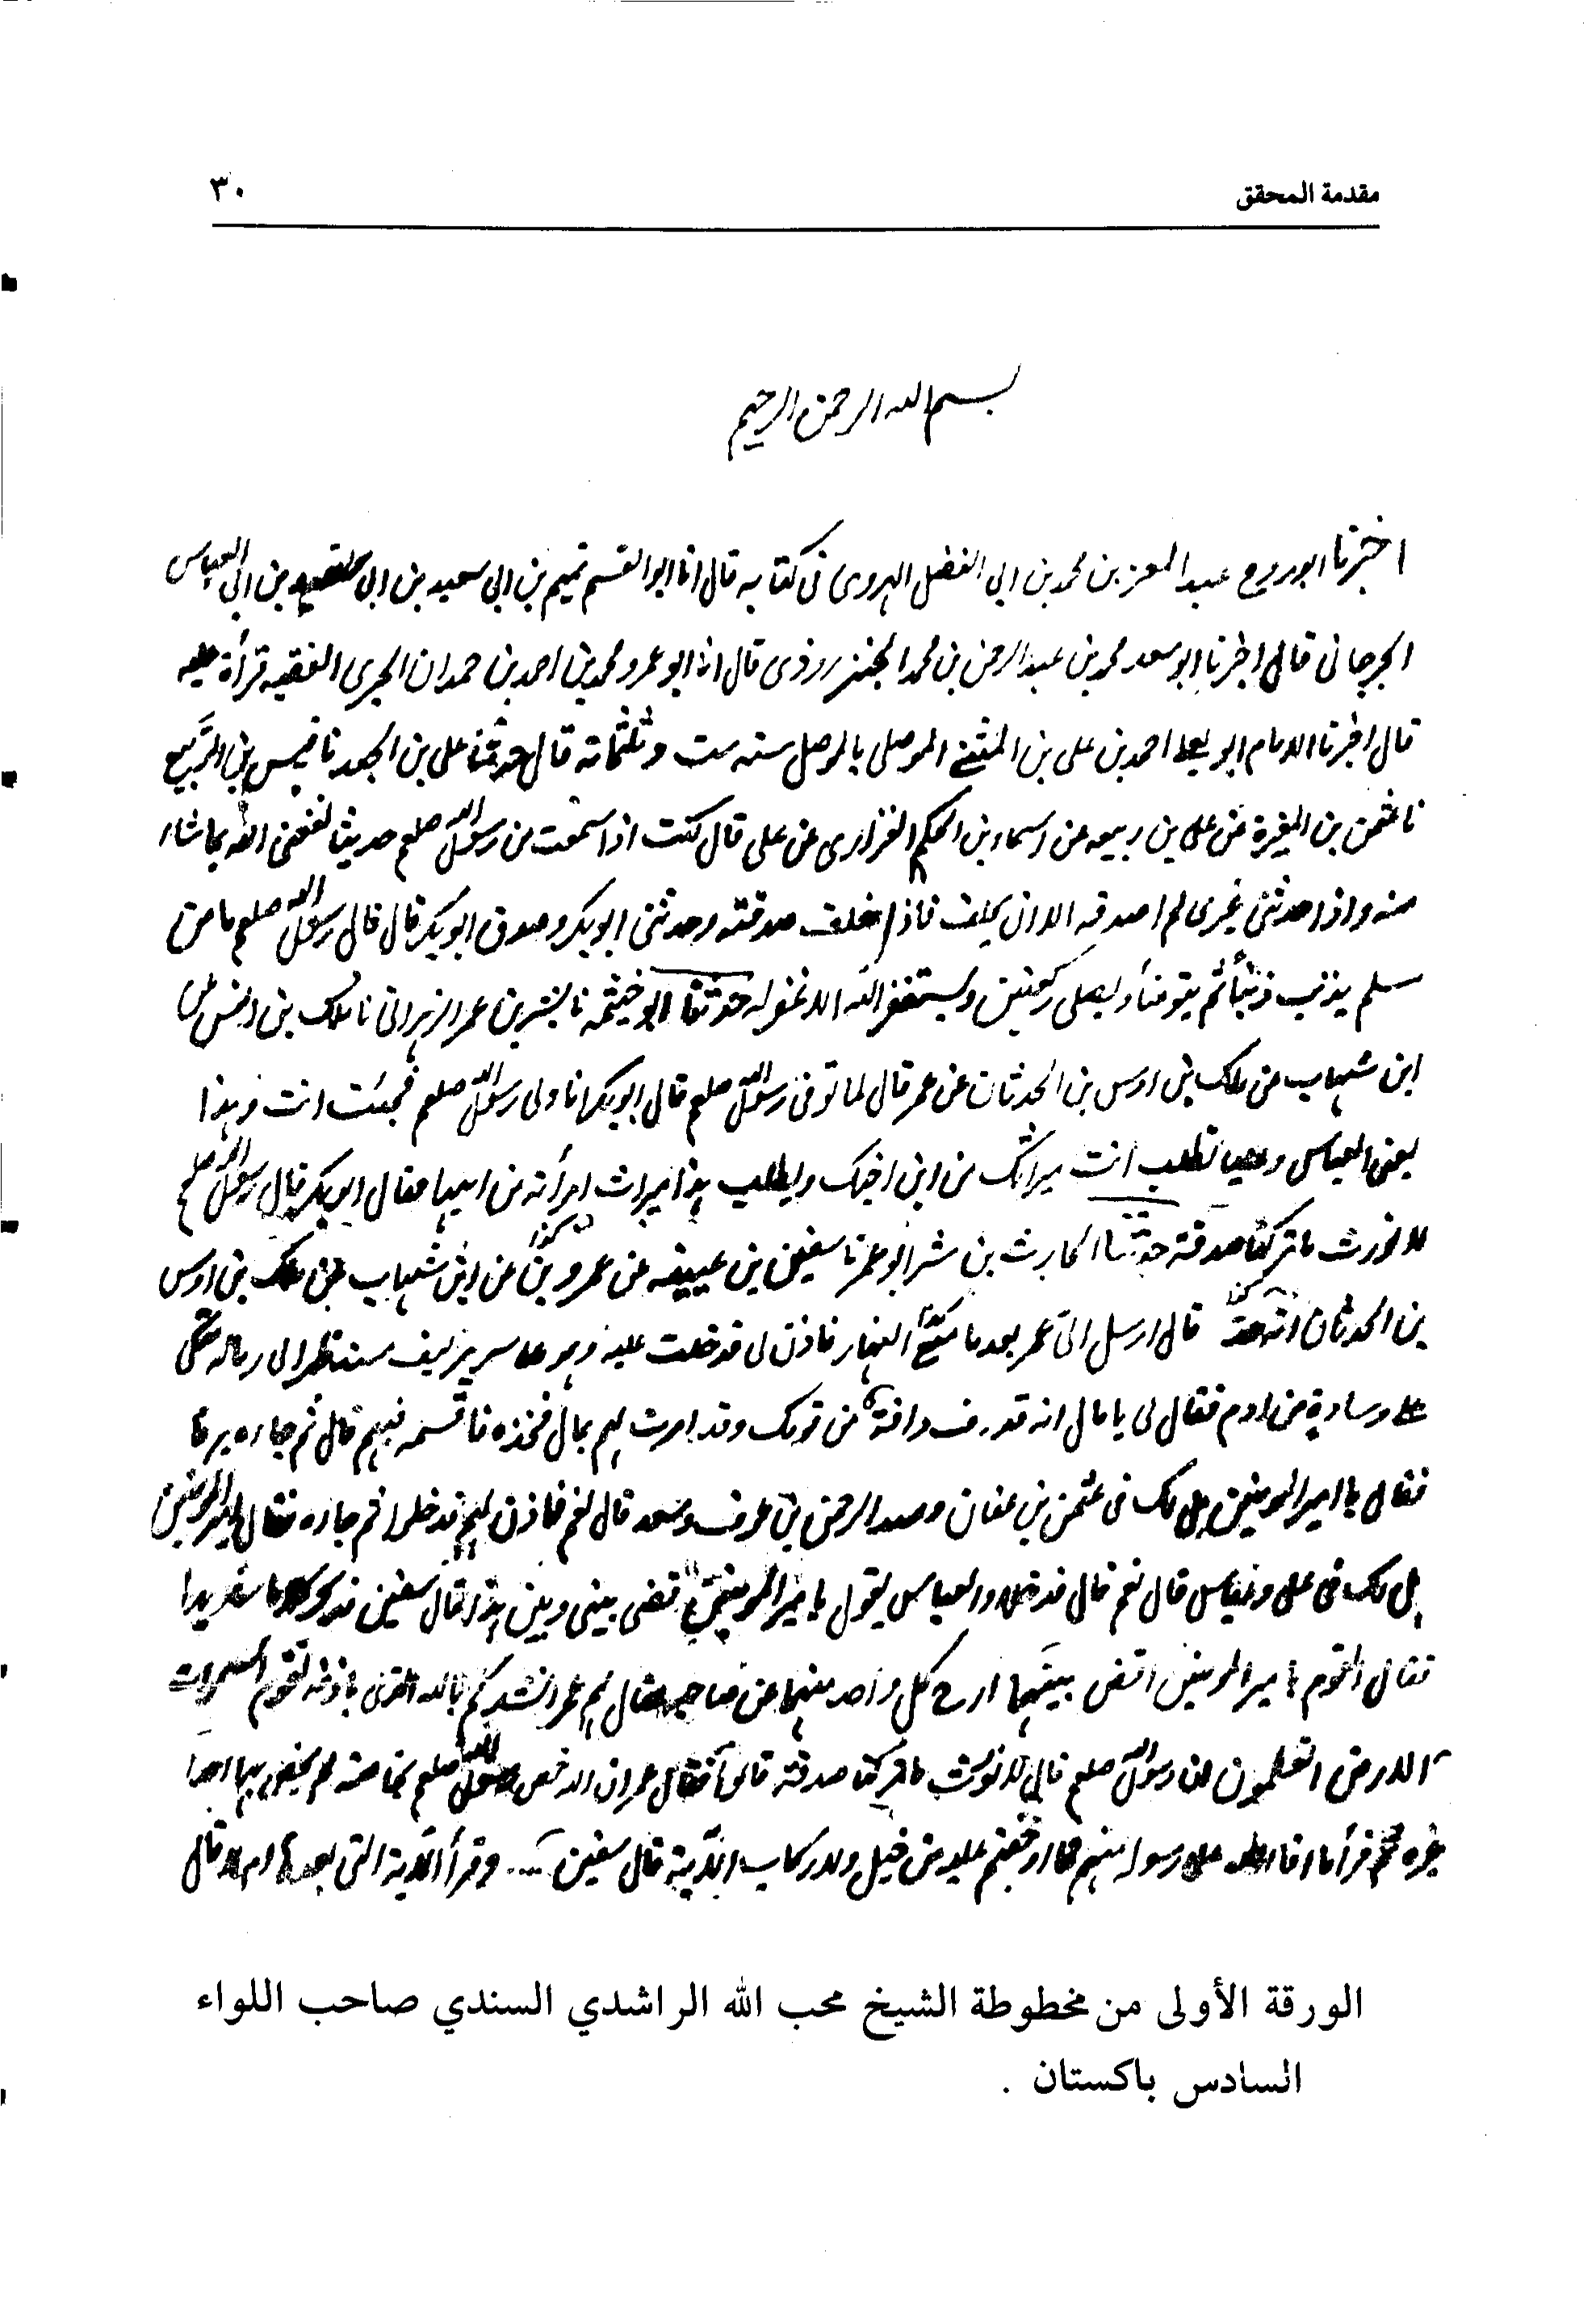 مقدمة المحقق
٣٠
بسم الله الرحمن الرحيم
اخبرنا ابو روح عبد المعز بن محمد بن ابى الفضل الهروى فى كتابه قال انا ابو القسم تميم بن ابى سعيد بن ابى بن ابى العباس
الجرجانى قال اخبرنا ابو سعد محمد بن عبد الرحمن بن محمد الجنزروذى قال انا ابو عمرو محمد بن احمد بن حمدان الحيرى الفقيه قرأة عليه
قال اخبرنا الامام ابو يعلى احمد بن على بن المثنى الموصلى بالموصل سنه ست وثلثمائة قال حدثنا على بن الجعد نا قيس بن الربيع
نا عثمن بن المغيرة عن على بن ربيعه عن اسماء بن الحكم الفزارى عن على قال كنت اذا سمعت من رسول الله صلعم حديثا نفعنى الله بما شاء
منه واذا حدثنى غيرى لم اصدقه الا ان يحلف فاذا حلف صدقته وحدثنى ابو بكر وصدق ابو بكر قال قال رسول الله صلعم ما من
مسلم يذنب ذنبا ثم يتوضأ ويصلى ركعتين ويستغفر الله الا غفر له حدثنا ابو خيثمه نا بشر بن عمر الزهرانى نا ملك بن انس عن
ابن شهاب عن ملك بن اوس بن الحدثان عن عمر قال لما توفى رسول الله صلعم قال ابو بكر انا ولى رسول الله صلعم فجئت انت وهذا
يعنى العباس وعليا تطلب انت ميراثك من ابن اخيك ويطلب هذا ميراث امرأته من ابيها فقال ابو بكر قال رسول الله صلعم
لا نورث ما تركنا صدقة حدثنا الحارث بن شر ابو عمر نا سفين بن عيينه عن عمرو بن كذا عن ابن شهاب عن ملك بن اوس
بن الحدثان انه كذا قال ارسل الىّ عمر بعد ما متع النهار فاذن لى فدخلت عليه وهو على سرير ليف مستندا الى رماله متكى
على وسادة من ادم فقال لى يا مال انه قد دف دافة من قومك وقد امرت لهم بمال فخذه فاقسمه فيهم قال ثم جاءه يرفا
فقال يا امير المومنين هل لك فى عثمن بن عفان وعبد الرحمن بن عوف وسعد قال نعم فاذن لهم فدخلوا ثم جاءه فقال يا امير المومنين
هل لك فى على وعباس قال نعم قال فدخلا والعباس يقول يا امير المومنين اقض بينى وبين هذا قال سفين فذكر كلاما شديدا
فقال القوم يا امير المومنين اقض بينهما ارح كل واحد منهما من صاحبه فقال لهم عمر انشدكم بالله الذى باذنه تقوم السموات
الارض اتعلمون ان رسول الله صلعم قال لا نورث ما تركنا صدقة قالوا فقال عمر ان الله خص رسول الله صلعم بخاصة لم يخص بها احدا
غيره ثم قرأ ما افاء الله على رسوله منهم فما اوجفتم عليه من خيل ولا ركاب الآية قال سفين .... وقرأ الآية التى بعدها ام لا قال
الورقة الأولى من مخطوطة الشيخ محب الله الراشدي السندي صاحب اللواء
السادس باكستان .